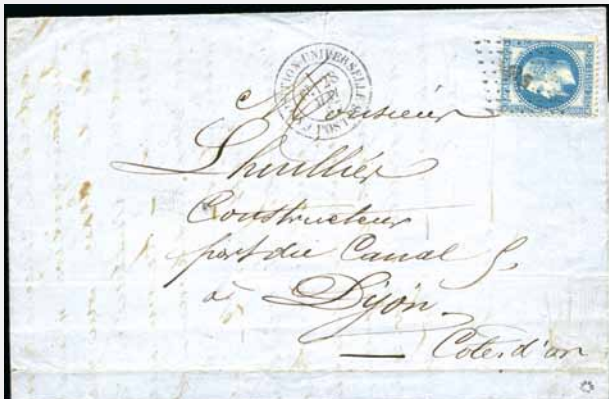 EXPOSITION UNIVERSELLE
POSTES
28
Monsieur
Lhuillier
Constructeur
port du Canal 5.
à Dijon.
Cote d'or